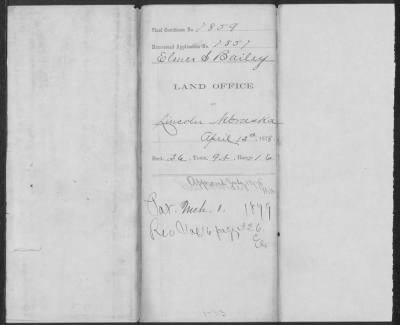 Final Certificate No. 1859
Homestead Application No. 1857
Elmer S Bailey
LAND OFFICE
at
Lincoln Nebraska
April 12th, 1878
Sect. 26, Town. 9 N., Range 1 6
Approved July
Pat. Mch. 1. 1879
Rec Vol 6 page 326